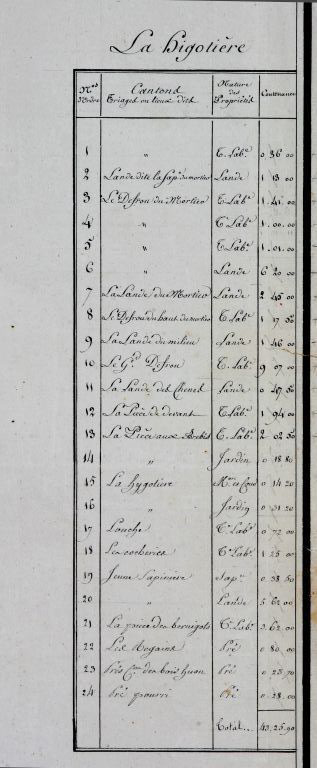 La higotière
Nos d'ordre Cantons Triages ou lieux dits Nature des Propriétés Contenance
1 " T. Labe 0 36 00
2 Lande dite la Sape du mortier Lande 1 13 00
3 Le Defrou du Mortier T. Labe 1. 41. 00
4 " T. Labe 1. 00. 00
5 " T. Labe 1. 01. 00
6 " Lande 6 20. 00
7 La Lande du Mortier Lande 2 45 00
8 Le Defrou du haut du mortier T. Labe 1 17 50
9 La Lande du milieu Lande 1 46 00
10 Le Gd Defrou T. Labe 9 07 00
11 La Lande des Chenes Lande 0 47 50
12 La Pièce de devant T. Labe 1 94 00
13 La Pièce aux T. Labe 2 02 50
14 " Jardin 0 18 80
15 La hygotière Mon et Cour 0 14 20
16 " Jardin 0 31 20
17 Louche Te Labe 0 72 00
18 Les rocheries Te Labe 1 25 00
19 Jeune Sapinière Sape 0 38 50
20 " Lande 5 62 00
21 La pièce des Te Labe 3. 62. 00
22 Les Regains Pré 0 80 00
23 Près des bois huon Pré 0 23. 70
24 Pré pourri Pré 0. 28. 00
Total.. 43. 25. 90